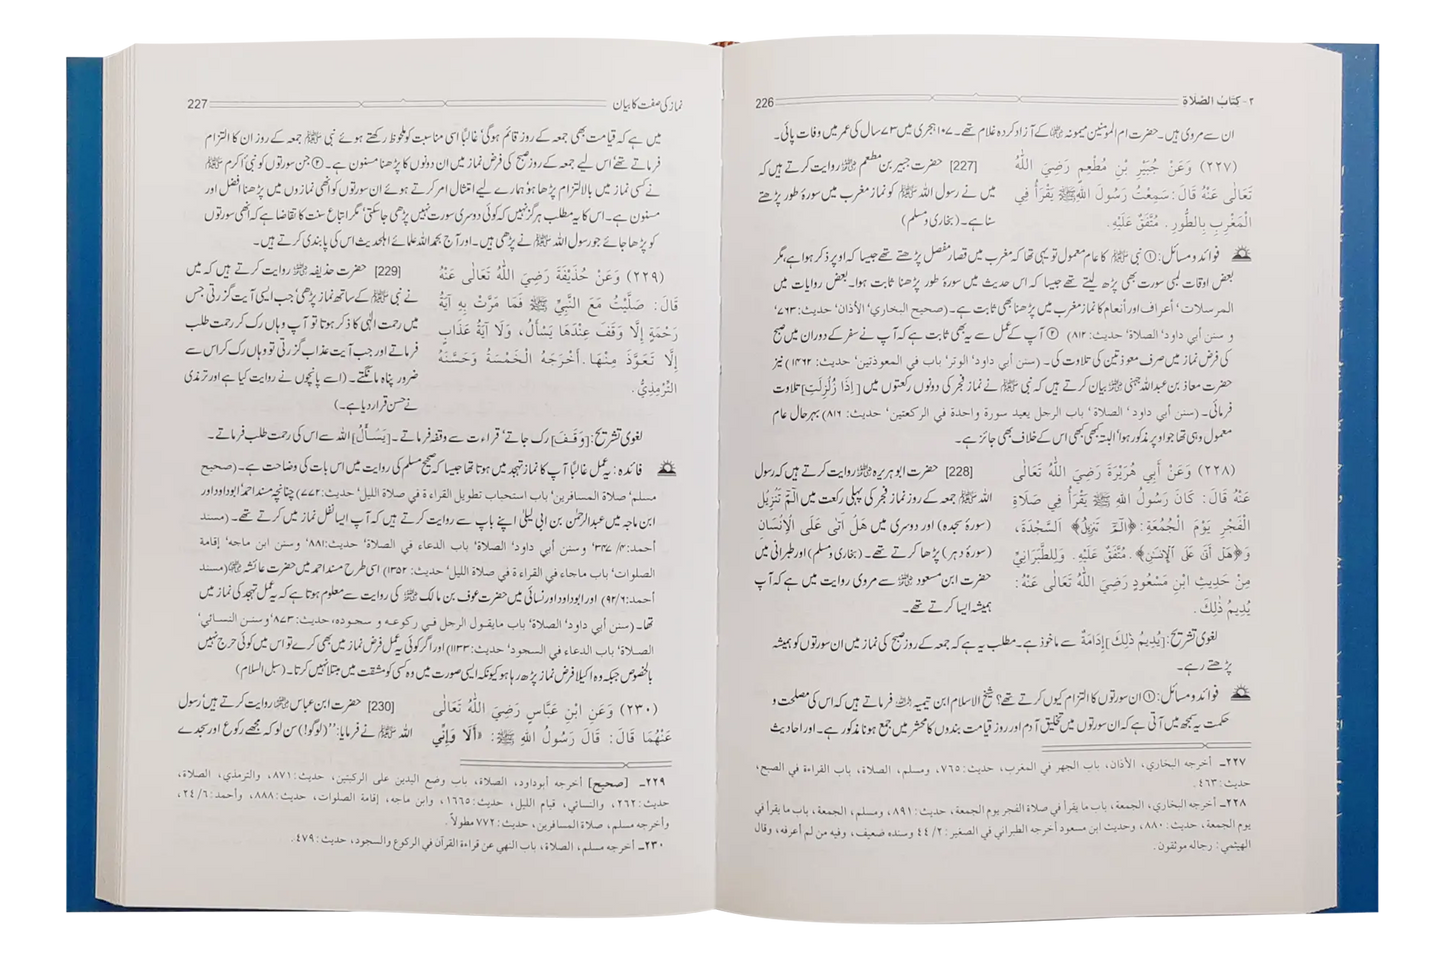 ۲- کتاب الصلاة 226
ان سے مروی ہیں۔ حضرت ام المؤمنین میمونہ ؓ کے آزاد کردہ غلام تھے۔ ۱۰۷ ہجری میں ۷۳ سال کی عمر میں وفات پائی۔
(٢٢٧) وَعَنْ جُبَيْرِ بْنِ مُطْعِمٍ رَضِيَ اللهُ
تَعَالَى عَنْهُ قَالَ: سَمِعْتُ رَسُولَ اللهِ ﷺ يَقْرَأُ فِي
الْمَغْرِبِ بِالطُّورِ. مُتَّفَقٌ عَلَيْهِ.
[227] حضرت جبیر بن مطعم ؓ روایت کرتے ہیں کہ
میں نے رسول اللہ ﷺ کو نماز مغرب میں سورۂ طور پڑھتے
سنا ہے۔ (بخاری و مسلم)
فوائد و مسائل: ① نبی ﷺ کا عام معمول تو یہی تھا کہ مغرب میں قصار مفصل پڑھتے تھے جیسا کہ اوپر ذکر ہوا ہے، مگر
بعض اوقات لمبی سورت بھی پڑھ لیتے تھے جیسا کہ اس حدیث میں سورۂ طور پڑھنا ثابت ہوا۔ بعض روایات میں
المرسلات، أعراف اور أنعام کا نماز مغرب میں پڑھنا بھی ثابت ہے۔ (صحیح البخاري، الأذان، حدیث: ۷۶۳،
و سنن أبي داود، الصلاة، حدیث: ۸۱۲) ② آپ کے عمل سے یہ بھی ثابت ہے کہ آپ نے سفر کے دوران میں صبح
کی فرض نماز میں صرف معوذتین کی تلاوت کی۔ (سنن أبي داود، الوتر، باب في المعوذتين، حدیث: ۱۴۶۲) نیز
حضرت معاذ بن عبداللہ جہنی ؓ بیان کرتے ہیں کہ نبی ﷺ نے نماز فجر کی دونوں رکعتوں میں [إِذَا زُلْزِلَتِ] تلاوت
فرمائی۔ (سنن أبي داود، الصلاة، باب الرجل يعيد سورة واحدة في الركعتين، حديث: ۸۱۶) بہرحال عام
معمول وہی تھا جو اوپر مذکور ہوا، البتہ کبھی کبھی اس کے خلاف بھی جائز ہے۔
(٢٢٨) وَعَنْ أَبِي هُرَيْرَةَ رَضِيَ اللهُ تَعَالَى
عَنْهُ قَالَ: كَانَ رَسُولُ اللهِ ﷺ يَقْرَأُ فِي صَلَاةِ
الْفَجْرِ يَوْمَ الْجُمُعَةِ: ﴿الٓمٓ تَنزِيلُ﴾ اَلسَّجْدَةَ،
وَ﴿هَلْ أَتَىٰ عَلَى ٱلْإِنسَٰنِ﴾. مُتَّفَقٌ عَلَيْهِ. وَلِلطَّبَرَانِيِّ
مِنْ حَدِيثِ ابْنِ مَسْعُودٍ رَضِيَ اللهُ تَعَالَى عَنْهُ:
يُدِيمُ ذٰلِكَ.
[228] حضرت ابو ہریرہ ؓ روایت کرتے ہیں کہ رسول
اللہ ﷺ جمعہ کے روز نماز فجر کی پہلی رکعت میں الٓمّٓ تَنْزِيْلُ
(سورۂ سجدہ) اور دوسری میں هَلْ أَتٰى عَلَى الْإِنْسَانِ
(سورۂ دہر) پڑھا کرتے تھے۔ (بخاری و مسلم) اور طبرانی میں
حضرت ابن مسعود ؓ سے مروی روایت میں ہے کہ آپ
ہمیشہ ایسا کرتے تھے۔
لغوی تشریح: [يُدِيمُ ذٰلِكَ] إِدَامَةٌ سے ماخوذ ہے۔ مطلب یہ ہے کہ جمعہ کے روز صبح کی نماز میں ان سورتوں کو ہمیشہ
پڑھتے رہے۔
فوائد و مسائل: ① ان سورتوں کا التزام کیوں کرتے تھے؟ شیخ الاسلام ابن تیمیہ ؒ فرماتے ہیں کہ اس کی مصلحت و
حکمت یہ سمجھ میں آتی ہے کہ ان سورتوں میں تخلیق آدم اور روز قیامت بندوں کا محشر میں جمع ہونا مذکور ہے۔ اور احادیث
٢٢٧ـ أخرجه البخاري، الأذان، باب الجهر في المغرب، حديث: ٧٦٥، ومسلم، الصلاة، باب القراءة في الصبح،
حديث: ٤٦٣.
٢٢٨ـ أخرجه البخاري، الجمعة، باب ما يقرأ في صلاة الفجر يوم الجمعة، حديث: ٨٩١، ومسلم، الجمعة، باب ما يقرأ في
يوم الجمعة، حديث: ٨٨٠، وحديث ابن مسعود أخرجه الطبراني في الصغير: ٢/ ٤٤ وسنده ضعيف، وفيه من لم أعرفه، وقال
الهيثمي: رجاله موثقون.
نماز کی صفت کا بیان 227
میں ہے کہ قیامت بھی جمعہ کے روز قائم ہوگی، غالباً اسی مناسبت کو ملحوظ رکھتے ہوئے نبی ﷺ جمعہ کے روز ان کا التزام
فرماتے تھے، اس لیے جمعہ کے روز صبح کی فرض نماز میں ان دونوں کا پڑھنا مسنون ہے۔ ② جن سورتوں کو نبی اکرم ﷺ
نے کسی نماز میں بالالتزام پڑھا ہو، ہمارے لیے امتثال امر کرتے ہوئے ان سورتوں کو انھی نمازوں میں پڑھنا افضل اور
مسنون ہے۔ اس کا یہ مطلب ہرگز نہیں کہ کوئی دوسری سورت نہیں پڑھی جا سکتی، مگر اتباع سنت کا تقاضا ہے کہ انھی سورتوں
کو پڑھا جائے جو رسول اللہ ﷺ نے پڑھی ہیں۔ اور آج بحمداللہ علمائے اہلحدیث اس کی پابندی کرتے ہیں۔
(٢٢٩) وَعَنْ حُذَيْفَةَ رَضِيَ اللهُ تَعَالَى عَنْهُ
قَالَ: صَلَّيْتُ مَعَ النَّبِيِّ ﷺ فَمَا مَرَّتْ بِهِ آيَةُ
رَحْمَةٍ إِلَّا وَقَفَ عِنْدَهَا يَسْأَلُ، وَلَا آيَةُ عَذَابٍ
إِلَّا تَعَوَّذَ مِنْهَا. أَخْرَجَهُ الْخَمْسَةُ وَحَسَّنَهُ
التِّرْمِذِيُّ.
[229] حضرت حذیفہ ؓ روایت کرتے ہیں کہ میں
نے نبی ﷺ کے ساتھ نماز پڑھی، جب ایسی آیت گزرتی جس
میں رحمت الٰہی کا ذکر ہوتا تو آپ وہاں رک کر رحمت طلب
فرماتے اور جب آیت عذاب گزرتی تو وہاں رک کر اس سے
ضرور پناہ مانگتے۔ (اسے پانچوں نے روایت کیا ہے اور ترمذی
نے حسن قرار دیا ہے۔)
لغوی تشریح: [وَقَفَ] رک جاتے، قراءت سے وقفہ فرماتے۔ [يَسْأَلُ] اللہ سے اس کی رحمت طلب فرماتے۔
فائدہ: یہ عمل غالباً آپ کا نماز تہجد میں ہوتا تھا جیسا کہ صحیح مسلم کی روایت میں اس بات کی وضاحت ہے۔ (صحيح
مسلم، صلاة المسافرين، باب استحباب تطويل القراءة في صلاة الليل، حديث: ۷۷۲) چنانچہ مسند احمد، ابوداود اور
ابن ماجہ میں عبدالرحمٰن بن ابی لیلیٰ اپنے باپ سے روایت کرتے ہیں کہ آپ ایسا نفل نماز میں کرتے تھے۔ (مسند
أحمد: ۴/ ۳۴۷، وسنن أبي داود، الصلاة، باب الدعاء في الصلاة، حديث: ۸۸۱، وسنن ابن ماجه، إقامة
الصلوات، باب ماجاء في القراءة في صلاة الليل، حديث: ۱۳۵۲) اسی طرح مسند احمد میں حضرت عائشہ ؓ (مسند
أحمد: ۹۲/۶) اور ابوداود اور نسائی میں حضرت عوف بن مالک ؓ کی روایت سے معلوم ہوتا ہے کہ یہ عمل تہجد کی نماز میں
تھا۔ (سنن أبي داود، الصلاة، باب مايقول الرجل في ركوعه و سجوده، حديث: ۸۷۳، وسنن النسائي،
الصلاة، باب الدعاء في السجود، حديث: ۱۱۳۳) اور اگر کوئی یہ عمل فرض نماز میں بھی کرے تو اس میں کوئی حرج نہیں
بالخصوص جبکہ وہ اکیلا فرض نماز پڑھ رہا ہو کیونکہ ایسی صورت میں وہ کسی کو مشقت میں مبتلا نہیں کرتا۔ (سبل السلام)
(٢٣٠) وَعَنِ ابْنِ عَبَّاسٍ رَضِيَ اللهُ تَعَالَى
عَنْهُمَا قَالَ: قَالَ رَسُولُ اللهِ ﷺ: «أَلَا وَإِنِّي
[230] حضرت ابن عباس ؓ روایت کرتے ہیں، رسول
اللہ ﷺ نے فرمایا: ’’(لوگو!) سن لو کہ مجھے رکوع اور سجدے
٢٢٩ـ [صحيح] أخرجه أبوداود، الصلاة، باب وضع اليدين على الركبتين، حديث: ٨٧١، والترمذي، الصلاة،
حديث: ٢٦٢، والنسائي، قيام الليل، حديث: ١٦٦٥، وابن ماجه، إقامة الصلوات، حديث: ٨٨٨، وأحمد: ٦/ ٢٤،
وأخرجه مسلم، صلاة المسافرين، حديث: ٧٧٢ مطولاً.
٢٣٠ـ أخرجه مسلم، الصلاة، باب النهي عن قراءة القرآن في الركوع والسجود، حديث: ٤٧٩.